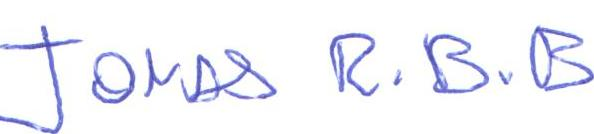 JONAS R. B. B